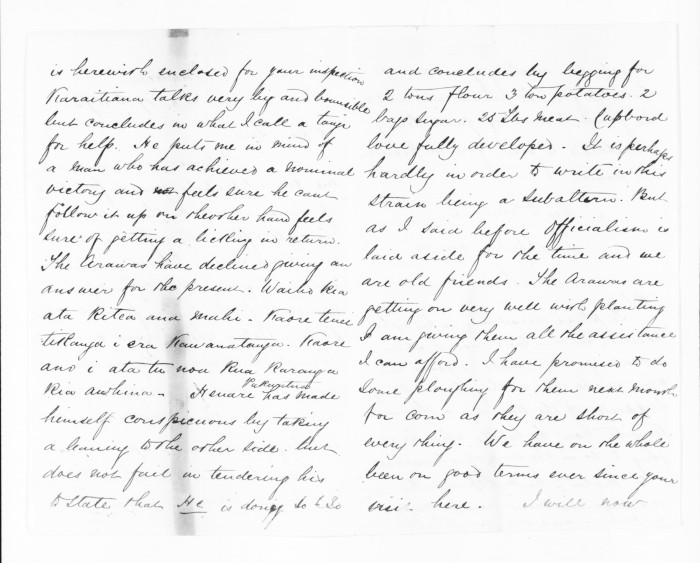 is herewith enclosed for your inspection
Karaitiana talks very big and
but concludes in what I call a
for help. He puts me in mind of
a man who has achieved a nominal
victory and not feels sure he cant
follow it up on the other hand feels
sure of getting a licking in return.
The Arawas have declined giving an
answer for the present. Waiho kia
ata kitea ana mahi. Kaore tenei
tikanga i era Kawanatanga. Kaore
ano i ata tu noa kua karanga
kia awhina - Henare has made
himself conspicuous by taking
a leaning to the other side. but
does not fail in tendering his
to state, that He is doing So & So
and concludes by begging for
2 tons flour 3 ton potatoes. 2
bags sugar. 25 lbs meat. Cupbord
love fully developed. It is perhaps
hardly in order to write in this
strain being a subaltern. But
as I said before Officialism is
laid aside for the time and we
are old friends. The Arawas are
getting on very well with planting
I am giving them all the assistance
I can afford. I have promised to do
some ploughing for them next month
for corn as they are short of
every thing. We have on the whole
been on good terms ever since your
visit here. I will now